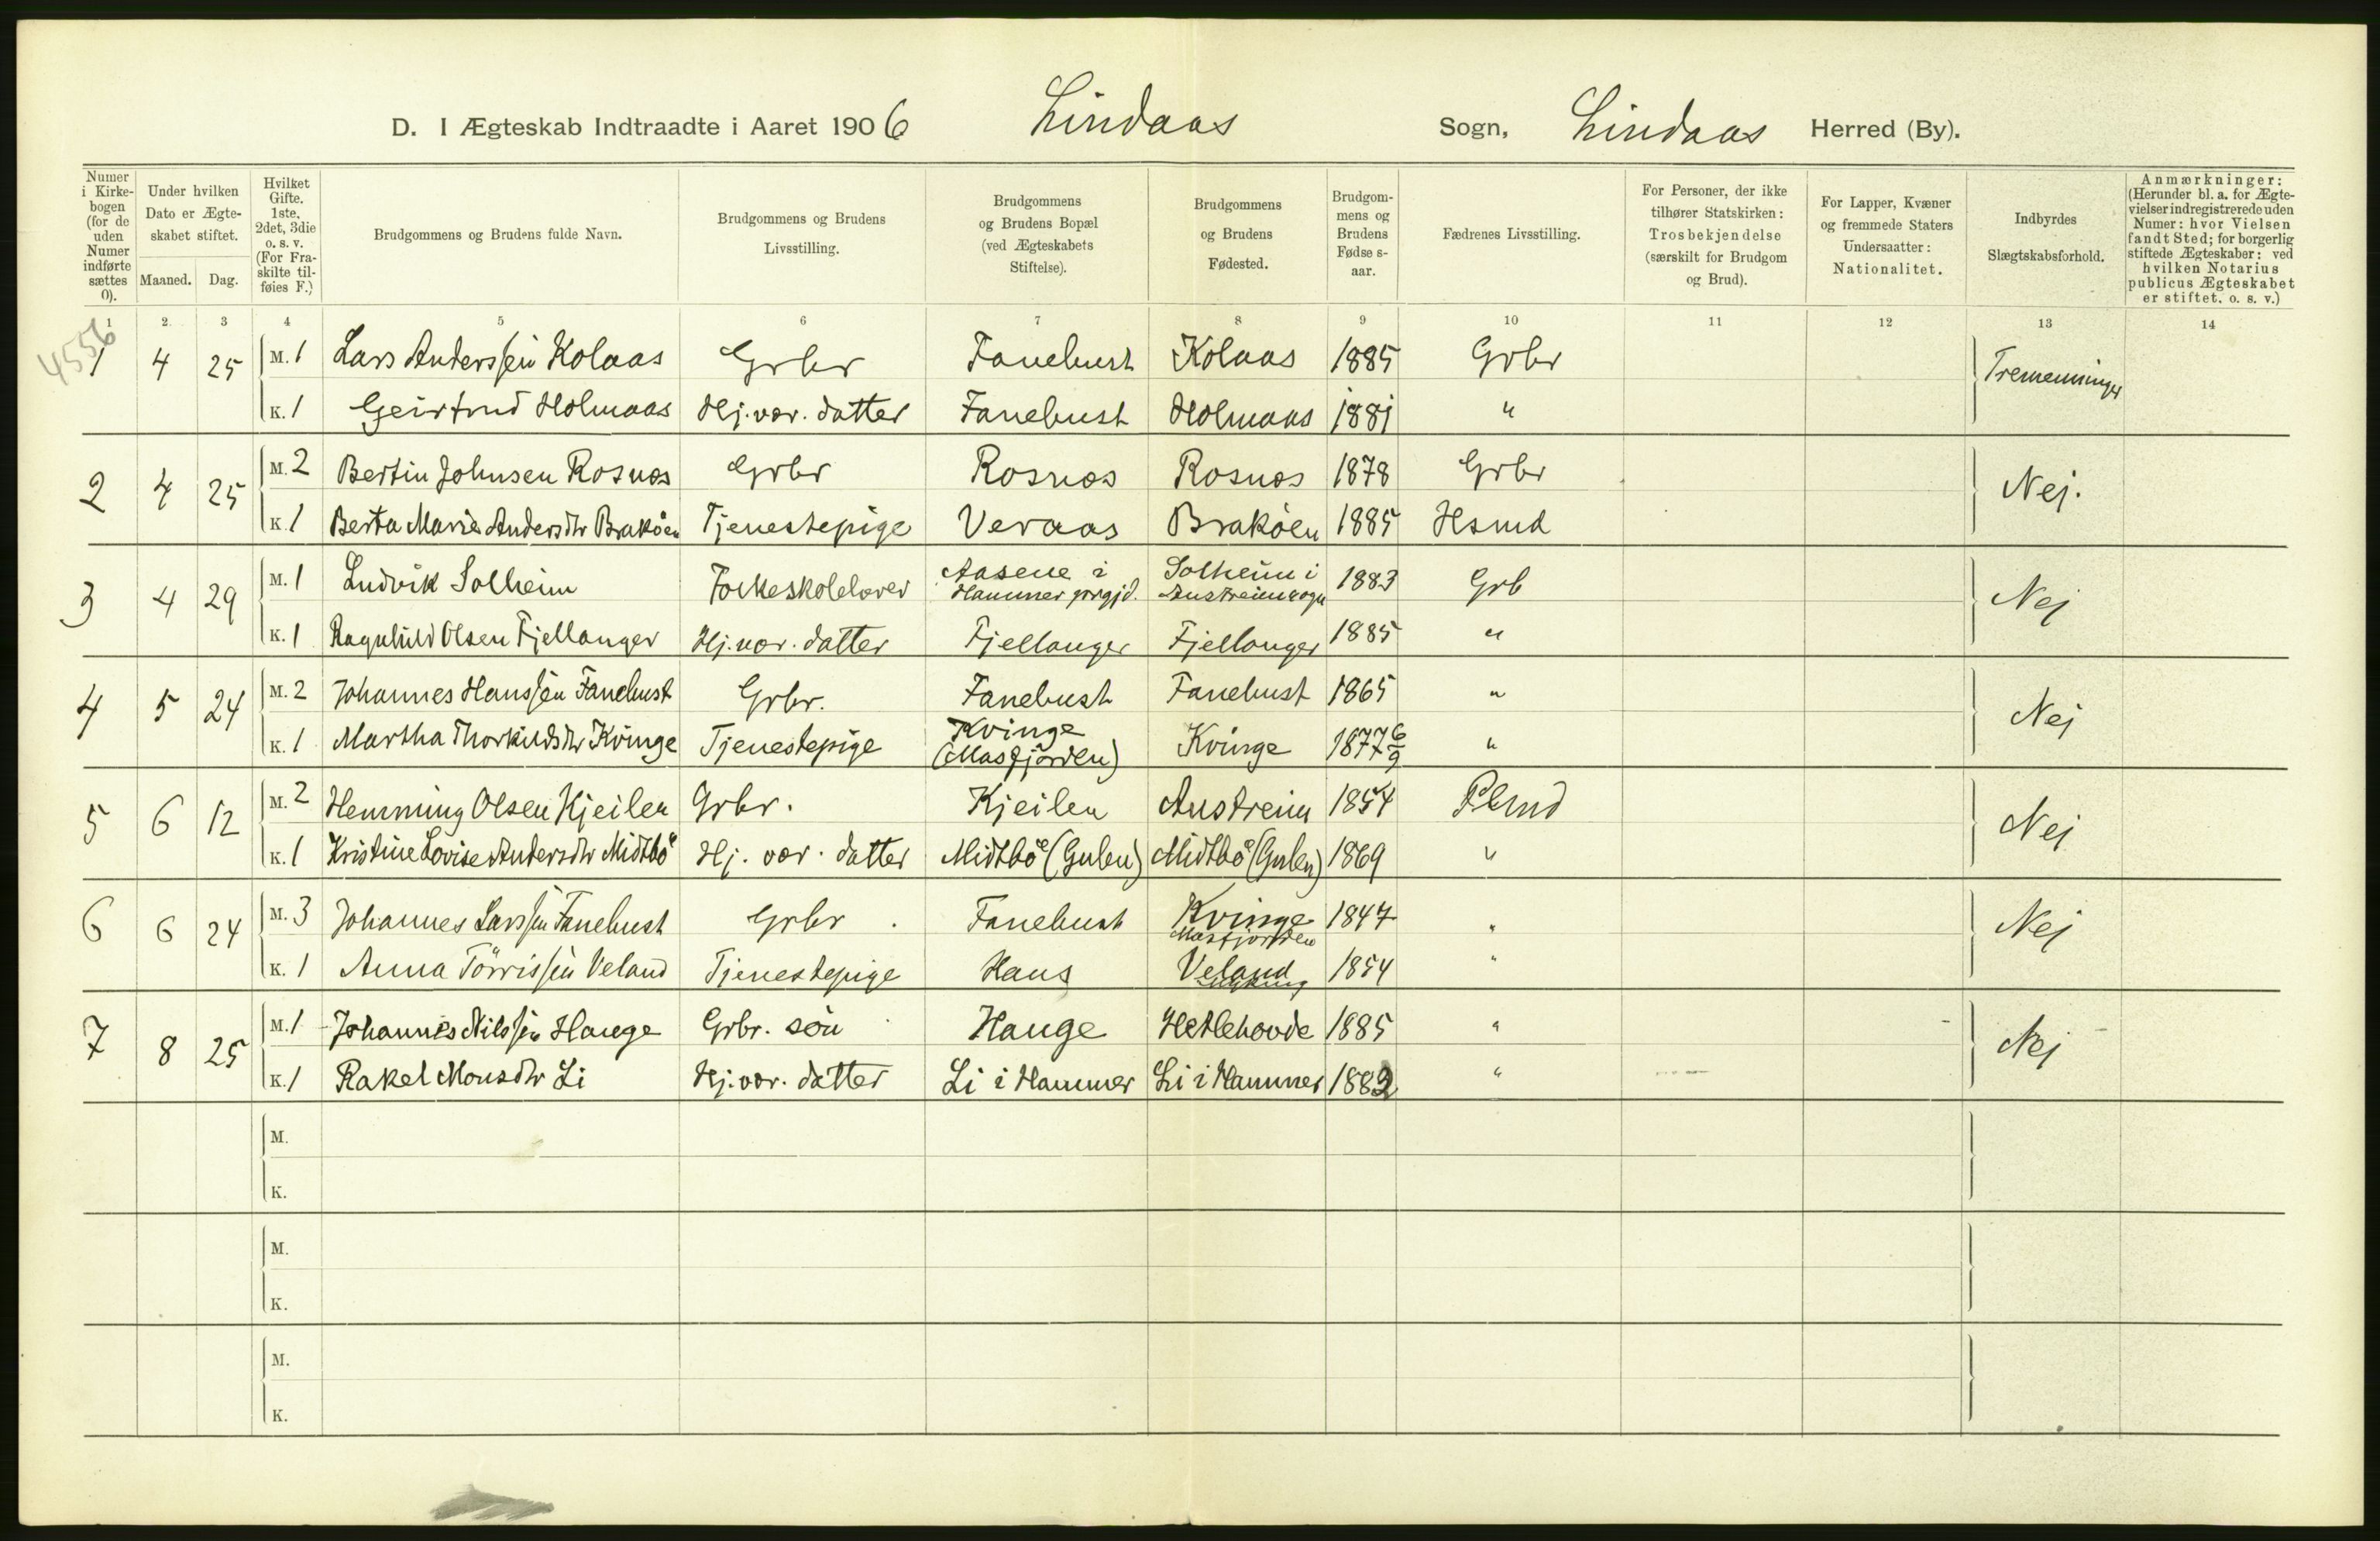 D. I Ægteskab Indtraadte i Aaret 1906 Lindaas Sogn, Lindaas Herred (By).
Numer i Kirke-bogen (for de uden Numer indførte sættes 0).
Under hvilken Dato er Ægte-skabet stiftet.
Maaned. Dag.
Hvilket Gifte. 1ste, 2det, 3die o. s. v. (For Fra-skilte til-føies F.)
Brudgommens og Brudens fulde Navn.
Brudgommens og Brudens Livsstilling.
Brudgommens og Brudens Bopæl (ved Ægteskabets Stiftelse).
Brudgommens og Brudens Fødested.
Brudgom-mens og Brudens Fødse s-aar.
Fædrenes Livsstilling.
For Personer, der ikke tilhører Statskirken: Trosbekjendelse (særskilt for Brudgom og Brud).
For Lapper, Kvæner og fremmede Staters Undersaatter: Nationalitet.
Indbyrdes Slægtskabsforhold.
Anmærkninger: (Herunder bl. a. for Ægte-vielser indregistrerede uden Numer: hvor Vielsen fandt Sted; for borgerlig stiftede Ægteskaber: ved hvilken Notarius publicus Ægteskabet er stiftet. o. s. v.)
1 2 3 4 5 6 7 8 9 10 11 12 13 14
4556
1 4 25 M. 1 Lars Anderssen Kolaas Grbr Fanebust Kolaas 1885 Grbr Tremenninger
K. 1 Geirtrud Holmaas Hj. vær. datter Fanebust Holmaas 1881 "
2 4 25 M. 2 Bertin Johnsen Rosnæs Grbr Rosnæs Rosnæs 1878 Grbr Nej.
K. 1 Berta Marie Andersdtr Brakøen Tjenestepige Veraas Brakøen 1885 Hsmd
3 4 29 M. 1 Ludvik Solheim Folkeskolelærer Aasene i Hammer prgjd. Solheim i Austreim sogn 1883 Grb Nej
K. 1 Ragnhild Olsen Fjellanger Hj. vær. datter Fjellanger Fjellanger 1885 "
4 5 24 M. 2 Johannes Hanssen Fanebust Grbr. Fanebust Fanebust 1865 " Nej
K. 1 Martha Thorkildsdtr Kvinge Tjenestepige Kvinge (Masfjorden) Kvinge 1877 6/9 "
5 6 12 M. 2 Hemming Olsen Kjeilen Grbr. Kjeilen Austreim 1854 Plmd Nej
K. 1 Kristine Lovise Andersdtr Midtbø Hj. vær. datter Midtbø (Gulen) Midtbø (Gulen) 1869 "
6 6 24 M. 3 Johannes Larssen Fanebust Grbr. Fanebust Kvinge Masfjorden 1847 " Nej
K. 1 Anna Tørrissen Veland Tjenestepige Haus Veland 1854 "
7 8 25 M. 1 Johannes Nilssen Hauge Grbr. søn Hauge Hetlehovde 1885 " Nej
K. 1 Rakel Monsdtr Li Hj. vær. datter Li i Hammer Li i Hammer 1882 "
M.
K.
M.
K.
M.
K.